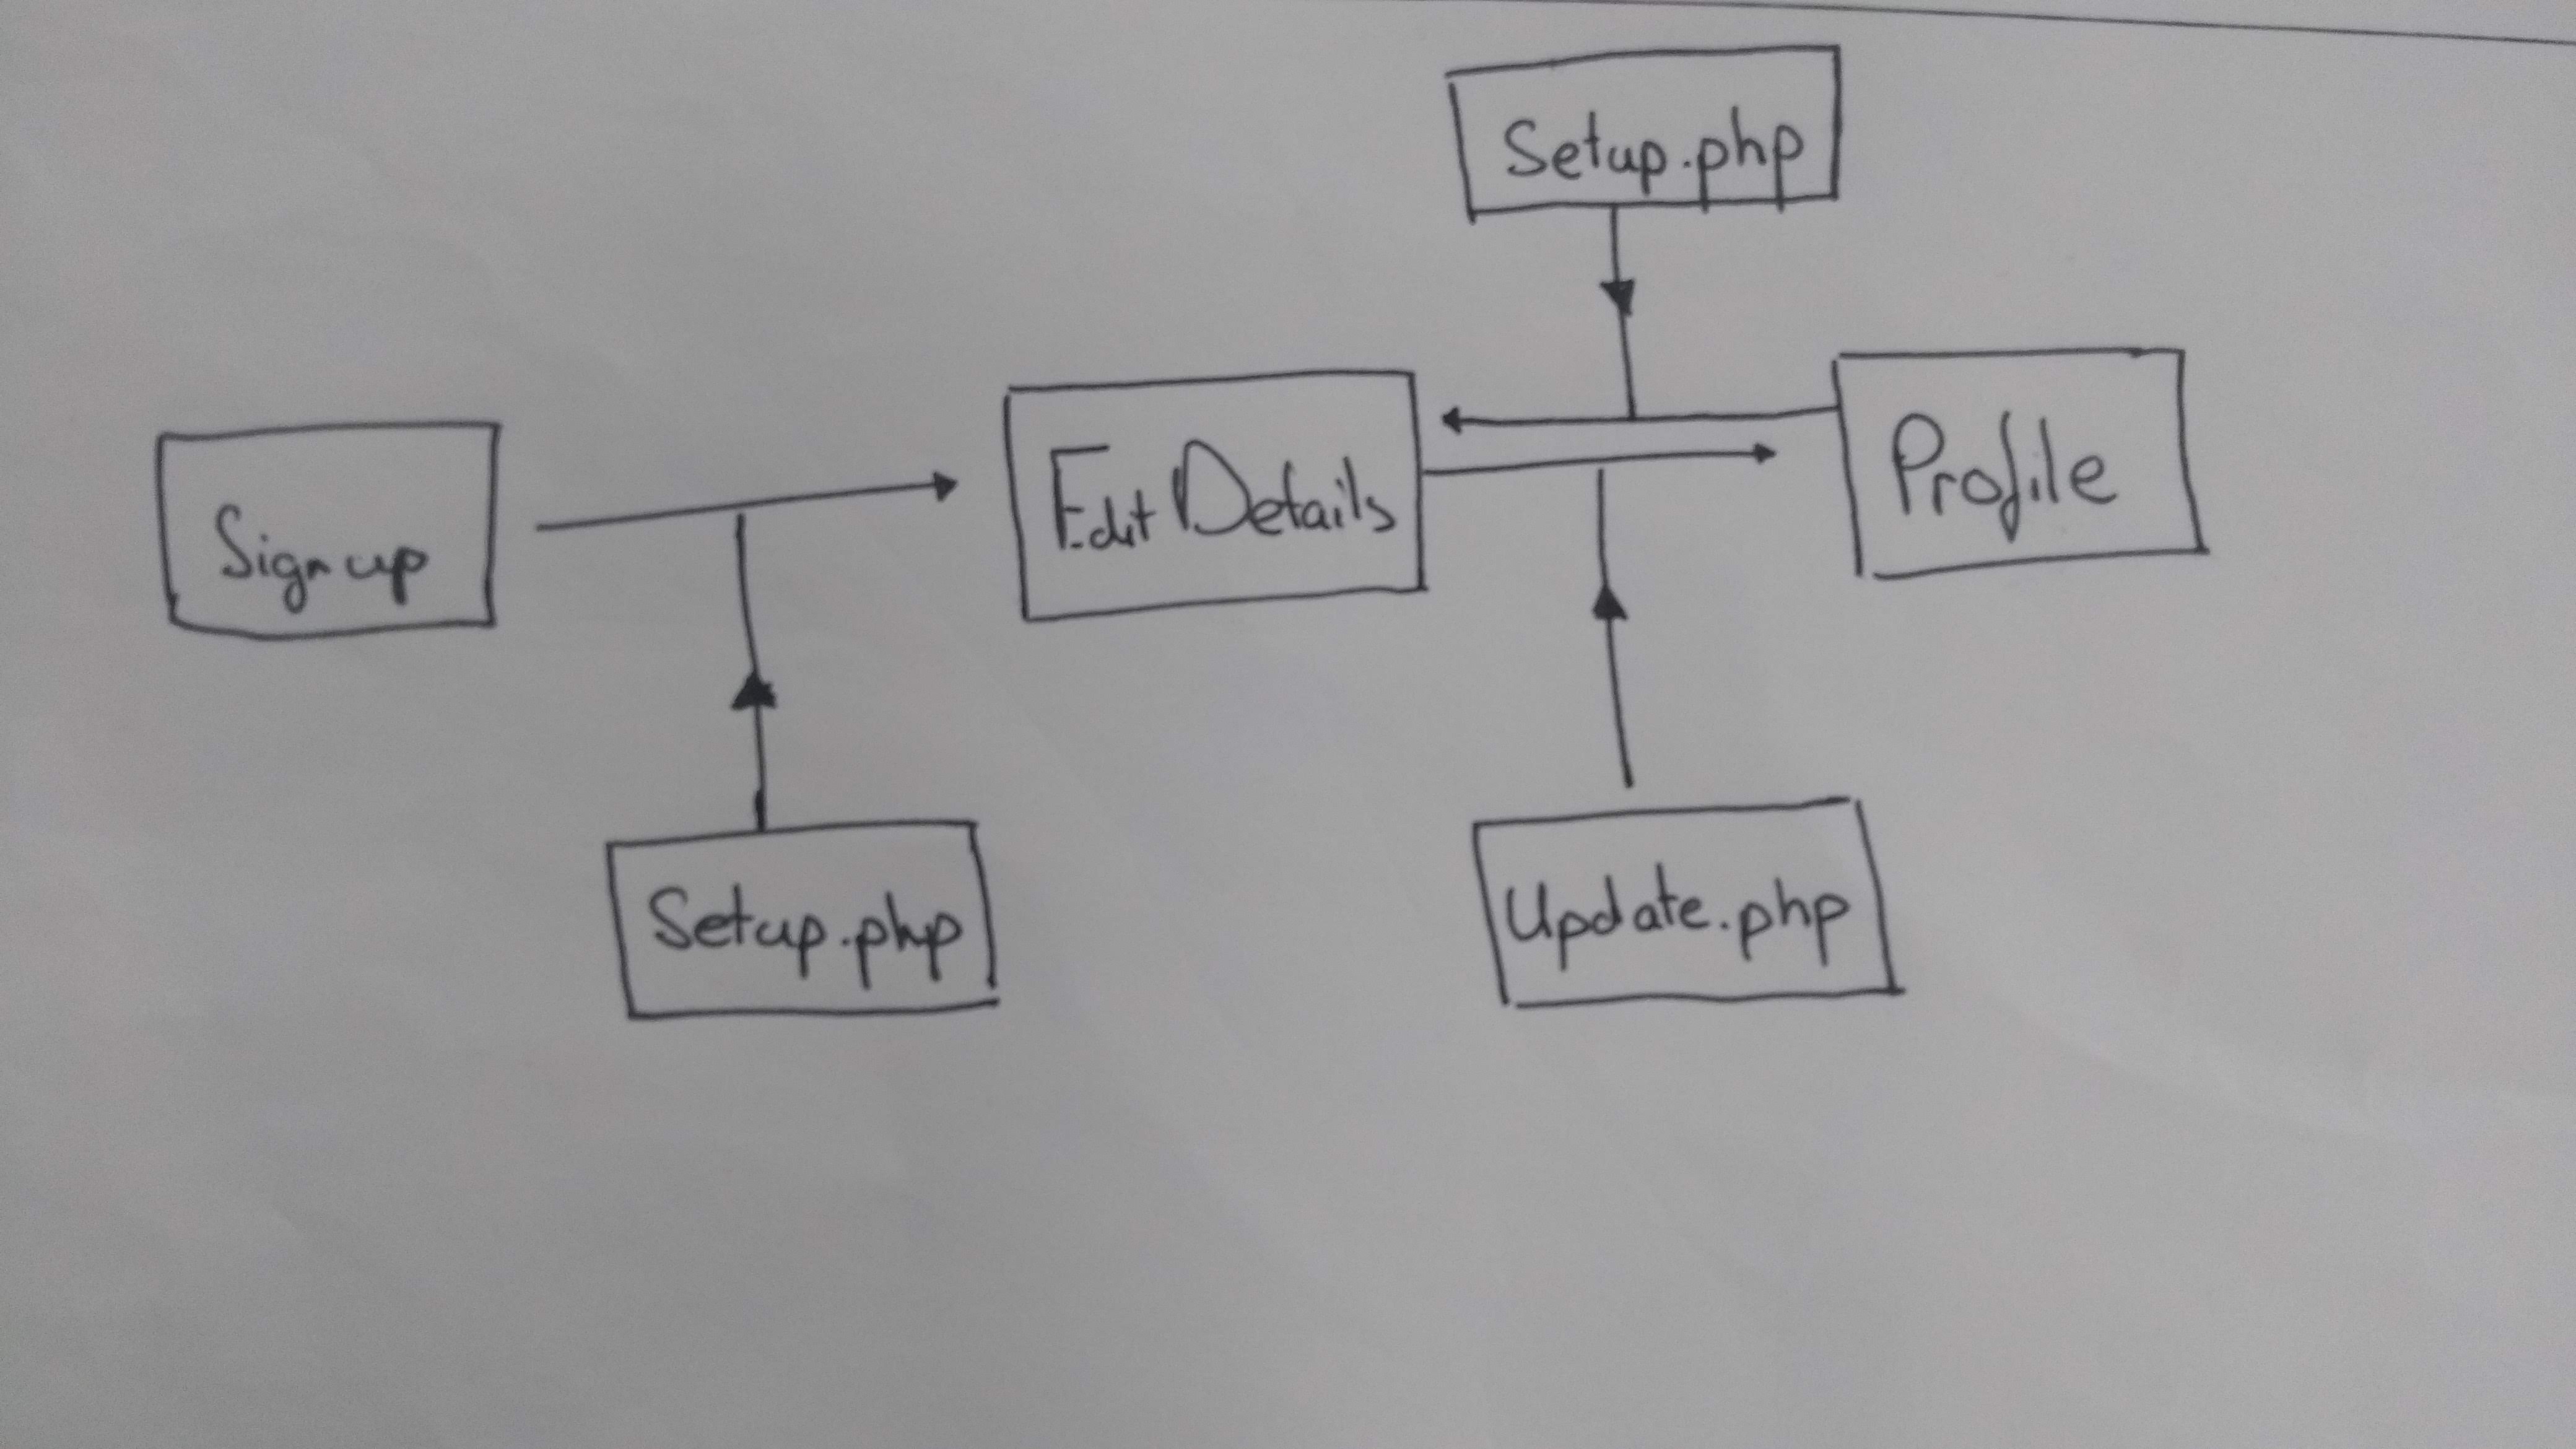 Setup.php
Sign up
Edit Details
Profile
Setup.php
Update.php